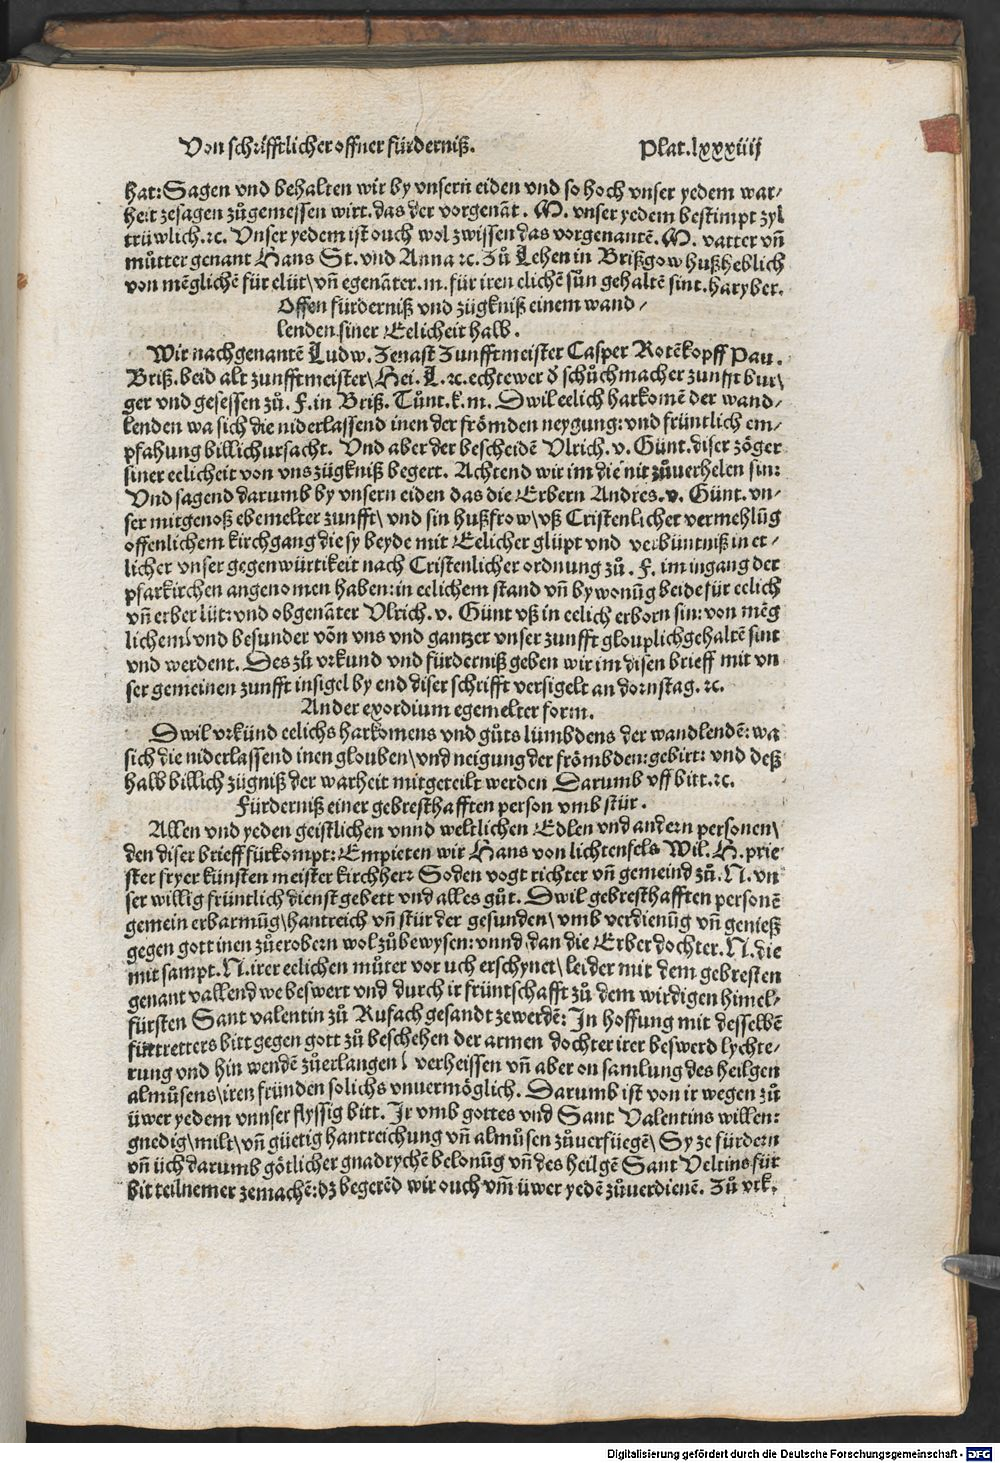 Von schrifftlicher offner fürderniß. Plat.lxxxiiij
hat: Sagen vnd behalten wir by vnsern eiden vnd so hoch vnser yedem war/
heit zesagen zůgemessen wirt. das der vorgenāt. M. vnser yedem bestimpt zyl
trüwlich.⁊c. Vnser yedem ist ouch wol zwissen das vorgenantē. M. vatter vn̄
můtter genant Hans St. vnd Anna ⁊c. Zů Lehen in Brißgow hußheblich
von mēglichē für elüt\ vn̄ egenāter.m. für iren elichē sůn gehaltē sint. har yber.
Offen fürderniß vnd zügkniß einem wand/
lenden siner Eelicheit halb.
Wir nachgenantē Ludw. Zenast Zunfftmeister Casper Rotēkopff Pau.
Briß. beid alt zunfftmeister\ Hei. L.⁊c. echtewer d̕ schůchmacher zunfft bur\
ger vnd gesessen zů. F. in Briß. Tůnt.k.m. Dwil eelich harkomē der wand/
lenden wa sich die niderlassend inen der frömden neygung: vnd früntlich em/
pfahung billich ursacht. Vnd aber der bescheidē Vlrich. v. Günt. diser zöger
siner eelicheit von vns zügkniß begert. Achtend wir im die nit zůuerhelen sin:
Vnd sagend darumb by vnsern eiden das die Erbern Andres. v. Günt. vn/
ser mitgenoß ebemelter zunfft\ vnd sin hußfrow\ vß Cristenlicher vermehlūg
offenlichem kirchgang die sy beyde mit Eelicher glüpt vnd verbüntniß in et/
licher vnser gegenwürtikeit nach Cristenlicher ordnung zů. F. im ingang der
pfarkirchen angenomen haben: in eelichem stand vn̄ bywonūg beide für eelich
vn̄ erber lüt: vnd obgenāter Vlrich. v. Günt vß in eelich erborn sin: von mēg
lichem\ vnd besunder vōn vns vnd gantzer vnser zunfft glouplich gehaltē sint
vnd werdent. Des zů vrkund vnd fürderniß geben wir im disen brieff mit vn
ser gemeinen zunfft insigel by end diser schrifft versigelt an dornstag. ⁊c.
Ander exordium egemelter form.
Dwil vrkünd eelichs harkomens vnd gůts lümbdens der wandlendē: wa
sich die niderlassend inen glouben\ vnd neigung der frömbden: gebirt: vnd deß
halb billich zügniß der warheit mitgeteilt werden Darumb vff bitt.⁊c.
Fürderniß einer gebresthafften person vmb stür.
Allen vnd yeden geistlichen vnnd weltlichen Edlen vnd andern personen\
den diser brieff fürkompt: Empieten wir Hans von lichtenfels Wil. H. prie
ster fryer künsten meister kirchherr Soden vogt richter vn̄ gemeind zů. N. vn
ser willig früntlich dienst gebett vnd alles gůt. Dwil gebresthafften personē
gemein erbarmūg\ hantreich vn̄ stür der gesunden\ vmb verdienūg vn̄ genieß
gegen gott inen zůerobern wol zůbewysen: vnnd dan die Erber dochter. N. die
mit sampt. N. irer eelichen můter vor uch erschynet\ leider mit dem gebresten
genant vallend we beswert vnd durch ir früntschafft zů dem wirdigen himel/
fürsten Sant valentin zů Rufach gesandt zewerdē: In hoffung mit desselbē
fürtretters bitt gegen gott zů beschehen der armen dochter irer beswerd lychte/
rung vnd hin wendē zůerlangen\ verheissen vn̄ aber on samlung des heilgen
almůsens\ iren fründen solichs vnuermöglich. Darumb ist von ir wegen zů
üwer yedem vnnser flyssig bitt. Ir vmb gottes vnd Sant Valentins willen:
gnedig\ milt\ vn̄ güetig hantreichung vn̄ almůsen zůuerfüegē\ Sy ze fürdern
vn̄ üch darumb götlicher gnad rychē belonūg vn̄ des heilgē Sant Veltins für
bit teilnemer zemachē: dz begerēd wir ouch vm̄ üwer yedē zůuerdienē. Zů vrk.
Digitalisierung gefördert durch die Deutsche Forschungsgemeinschaft - DFG